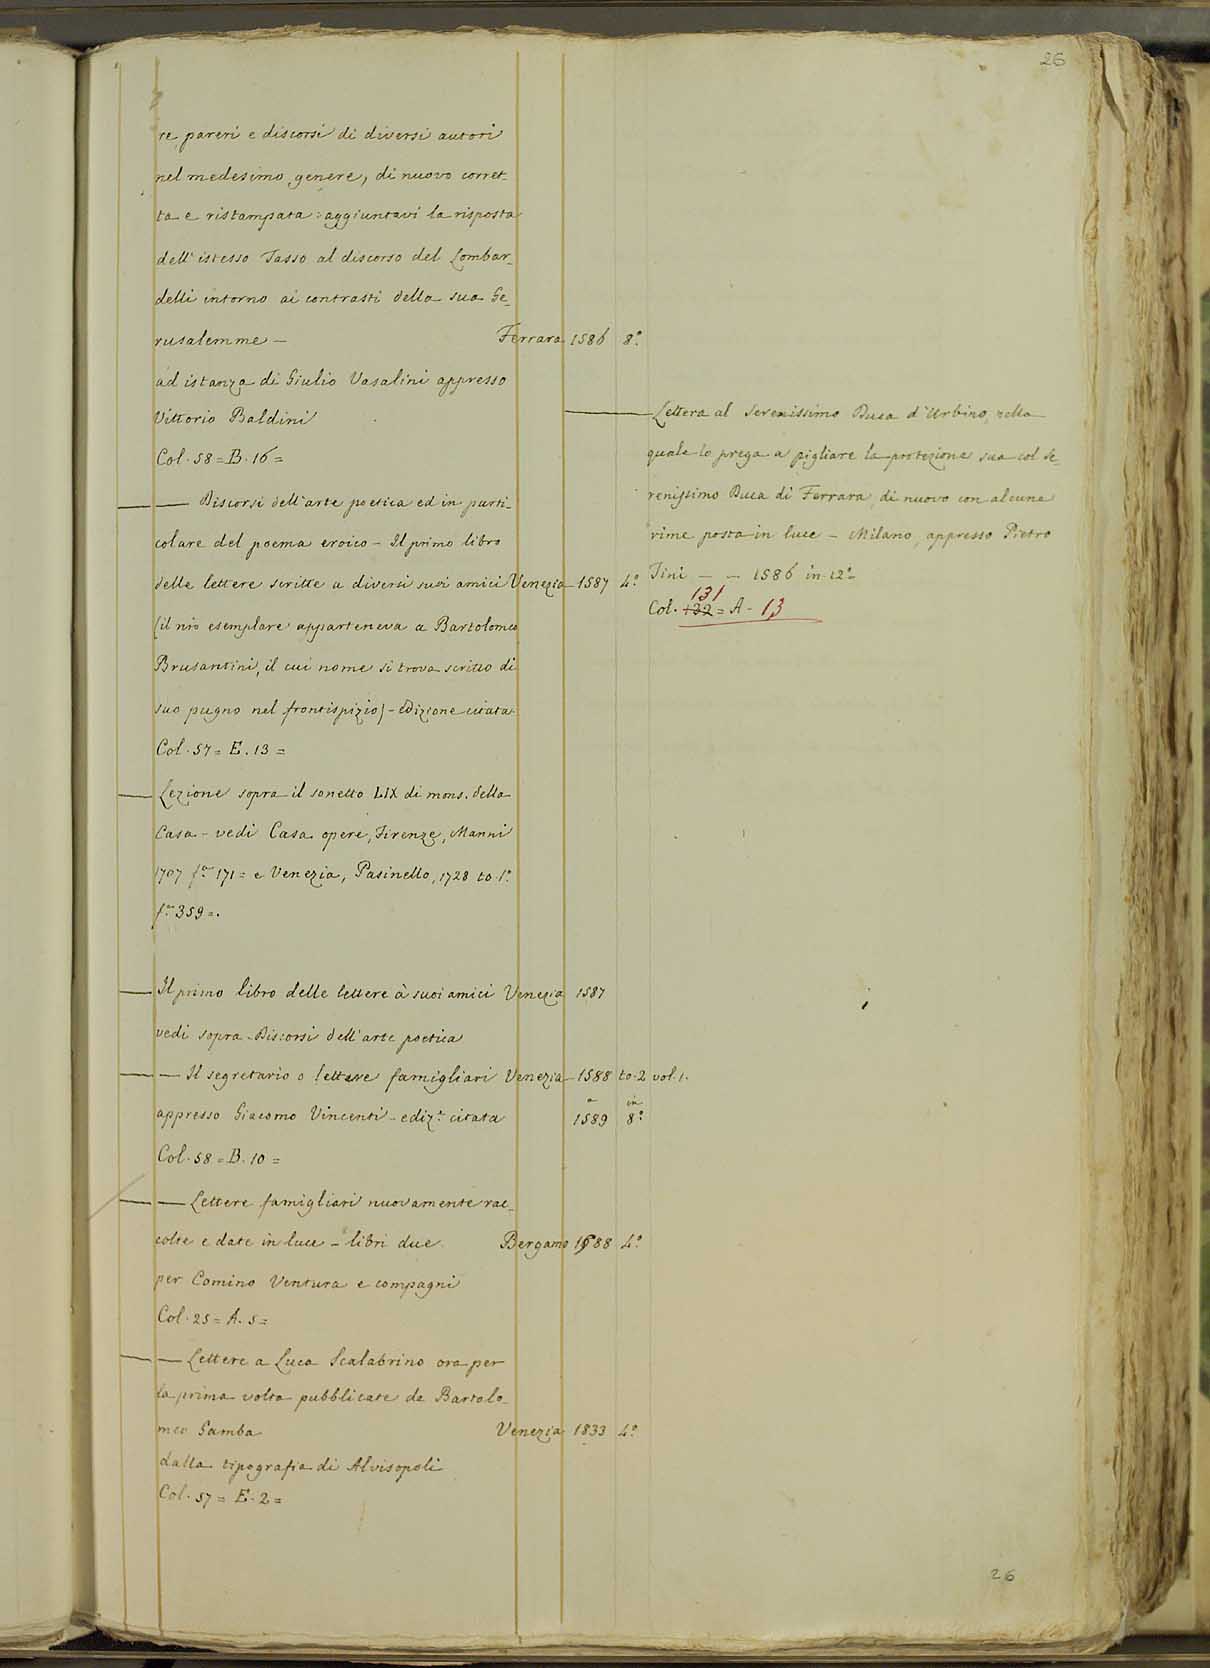 26
re, pareri e discorsi di diversi autori
nel medesimo genere, di nuovo corret-
ta e ristampata: aggiuntavi la risposta
dell'istesso Tasso al discorso del Lombar-
delli intorno ai contrasti della sua Ge-
rusalemme — Ferrara 1586 8.º
ad istanza di Giulio Vasalini appresso
Vittorio Baldini
Col. 58 = B. 16 =
— Discorsi dell'arte poetica ed in parti-
colare del poema eroico – Il primo libro
delle lettere scritte a diversi suoi amici Venezia 1587 4.º
(il nro esemplare apparteneva a Bartolomeo
Brusantini, il cui nome si trova scritto di
suo pugno nel frontispizio) – edizione citata
Col. 57 = E. 13 =
— Lezione sopra il sonetto LIX di mons. della
Casa – vedi Casa opere, Firenze, Manni
1707 f.ª 171 = e Venezia, Pasinello, 1728 to. 1.º
f.ª 359 =.
— Il primo libro delle lettere à suoi amici Venezia 1587
vedi sopra Discorsi dell'arte poetica
— — Il segretario o lettere famigliari Venezia 1588 to. 2 vol. 1.
a in
appresso Giacomo Vincenti – ediz.e citata 1589 8.º
Col. 58 = B. 10 =
— — Lettere famigliari nuovamente rac-
colte e date in luce – libri due Bergamo 1588 4.º
per Comino Ventura e compagni
Col. 25 = A. 5 =
— — Lettere a Luca Scalabrino ora per
la prima volta pubblicate da Bartolo-
meo Gamba Venezia 1833 4.º
dalla tipografia di Alvisopoli
Col. 57 = E. 2 =
— Lettera al Serenissimo Duca d'Urbino, nella
quale lo prega a pigliare la protezione sua col Se-
renissimo Duca di Ferrara, di nuovo con alcune
rime posta in luce – Milano, appresso Pietro
Tini — — 1586 in 12.º
131
Col. 132 = A. 13
26